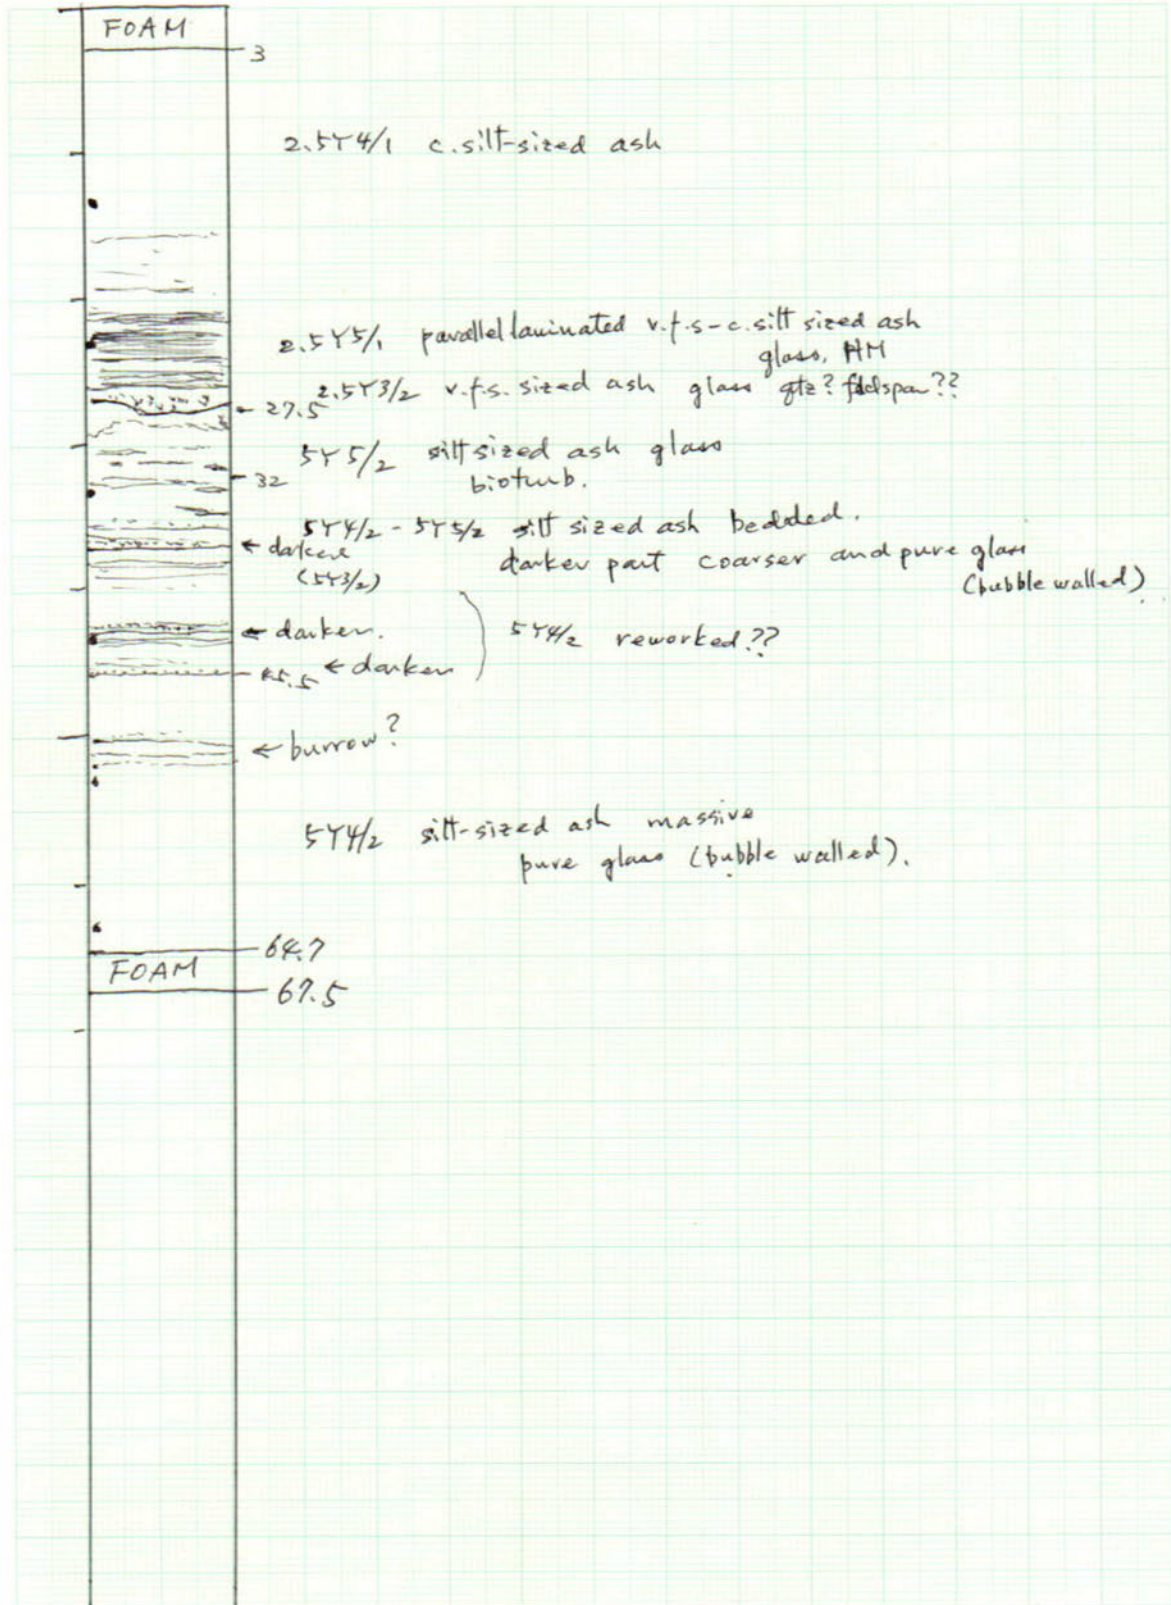 FOAM
3
2.5Y4/1 c.silt-sized ash
2.5Y5/1 parallel laminated v.f.s-c.silt sized ash
glass, HM
2.5Y3/2 v.f.s. sized ash glass qtz? fdelspar??
27.5
5Y5/2 silt sized ash glass
bioturb.
32
5Y4/2 - 5Y5/2 silt sized ash bedded.
← darker
(5Y3/2)
darker part coarser and pure glass
(bubble walled)
← darker.
5Y4/2 reworked??
45.5 ← darker
← burrow?
5Y4/2 silt-sized ash massive
pure glass (bubble walled).
64.7
FOAM
67.5